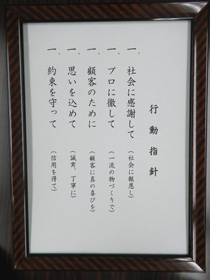 行動指針
一、社会に感謝して（社会に報恩し）
一、プロに徹して（一流の物づくりで）
一、顧客のために（顧客に真の喜びを）
一、思いを込めて（誠実、丁寧に）
一、約束を守って（信用を得て）